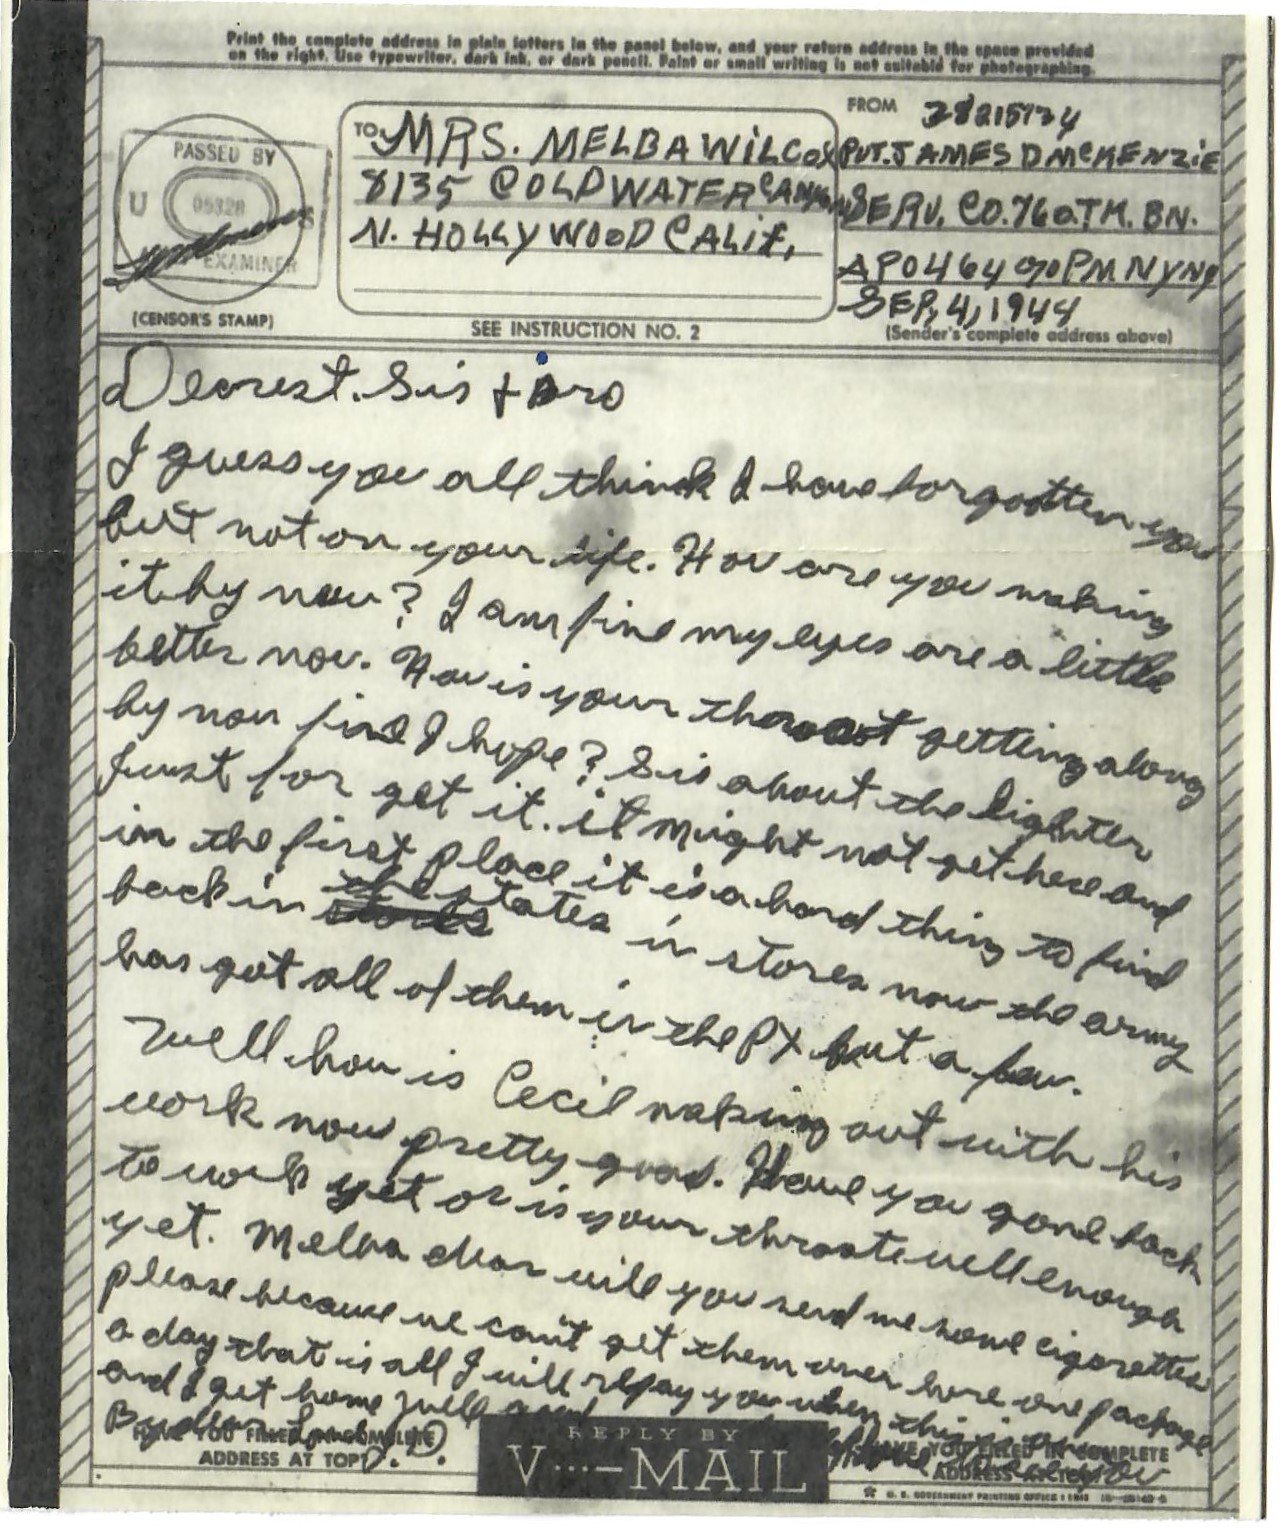 Print the complete address in plain letters in the panel below, and your return address in the space provided
on the right. Use typewriter, dark ink, or dark pencil. Faint or small writing is not suitable for photographing.
PASSED BY
U 05328 S
EXAMINER
(CENSOR'S STAMP)
TO: MRS. MELBA WILCOX
8135 COLDWATER CANYON
N. HOLLYWOOD CALIF.
SEE INSTRUCTION NO. 2
FROM
PVT. JAMES D MCKENZIE
SERV. CO. 760 TK. BN.
APO 464 % PM NY NY
SEP, 4, 1944
(Sender's complete address above)
Dearest. Sis + Bro
I guess you all think I have forgotten you
but not on your life. How are you making
it by now? I am fine my eyes are a little
better now. How is your throat getting along
by now fine I hope? Sis about the lighter
Just for get it. it might not get here and
in the first place it is a hard thing to find
back in the states in stores now the army
has got all of them in the PX but a few.
Well how is Cecil making out with his
work now pretty good. Have you gone back
to work yet or is your throate well enough
yet. Melba dear will you send me some cigarettes
please because we can't get them over here one package
a day that is all I will repay you when this is over
and I get home well
Bye dear
J.D.
HAVE YOU FILLED IN COMPLETE
ADDRESS AT TOP?
REPLY BY
V···—MAIL
HAVE YOU FILLED IN COMPLETE
ADDRESS AT TOP?
U. S. GOVERNMENT PRINTING OFFICE